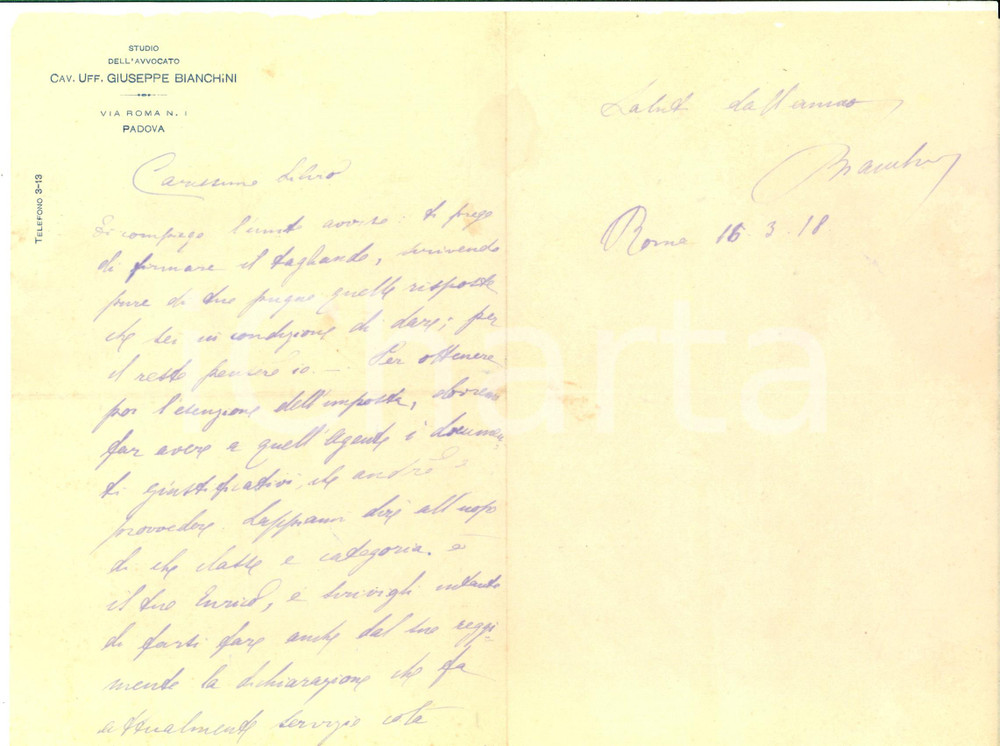 STUDIO
DELL'AVVOCATO
CAV. UFF. GIUSEPPE BIANCHINI
VIA ROMA N. 1
PADOVA
TELEFONO 3-13
Carissimo Silvio
Ti compiego l'unito avviso: ti prego
di firmare il tagliando, scrivendo
pure di tuo pugno quelle risposte
che sei in condizione di dare; per
il resto penserò io. — Per ottenere
poi l'esenzione dell'imposta, dovremo
far avere a quell'Agente i documen-
ti giustificativi, che andrò a
provvedere. Sappiami dire all'uopo
di che classe e categoria è
il tuo Enrico, e scrivigli intanto
di farsi fare anche dal suo reggi-
mento la dichiarazione che fa
attualmente servizio costà
Saluti dall'
Bianchini
Roma 16.3.18
iCharta